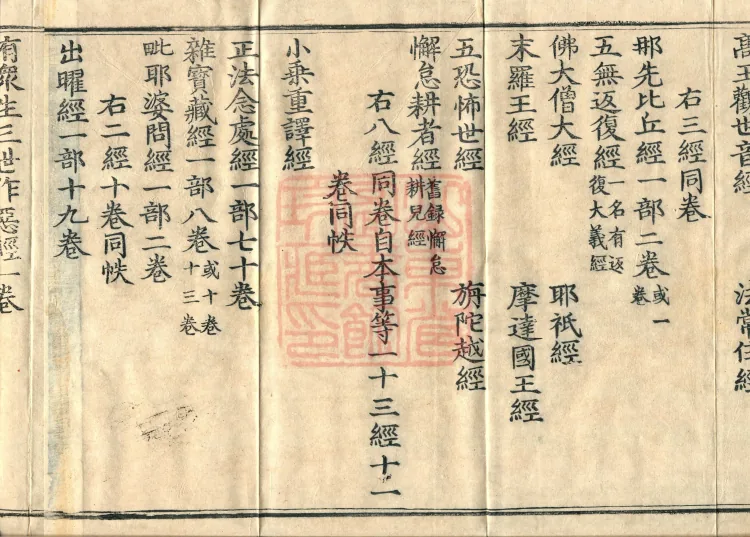 萬王觀世音經 法常住經
右三經同卷
那先比丘經一部二卷或一卷
五無返復經一名有返復大義經
佛大僧大經 耶祇經
末羅王經 摩達國王經
五恐怖世經 旃陀越經
懈怠耕者經舊録懈怠耕兒經
右八經同卷自本事等一十三經十一
卷同帙
小乗重譯經
正法念處經一部七十卷
雜寶藏經一部八卷或十卷十三卷
毗耶婆問經一部二卷
右二經十卷同帙
出曜經一部十九卷
有衆生三世作惡經一卷